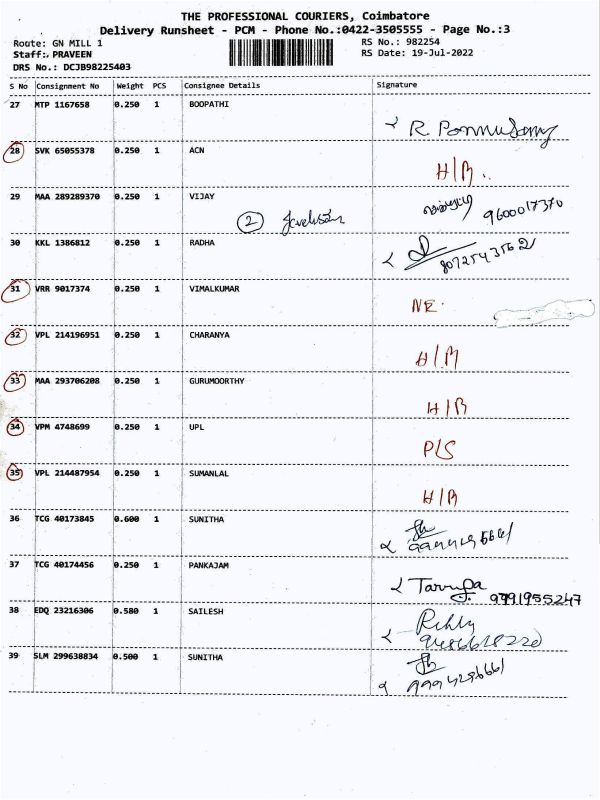 THE PROFESSIONAL COURIERS, Coimbatore
Delivery Runsheet - PCM - Phone No.:0422-3505555 - Page No.:3
Route: GN MILL 1
RS No.: 982254
Staff:. PRAVEEN
RS Date: 19-Jul-2022
DRS No.: DCJB98225403
S No Consignment No Weight PCS Consignee Details Signature
27 MTP 1167658 0.250 1 BOOPATHI
28 SVK 65055378 0.250 1 ACN
H/B.
29 MAA 289289370 0.250 1 VIJAY
2 9600017370
30 KKL 1386812 0.250 1 RADHA
31 VRR 9017374 0.250 1 VIMALKUMAR
NR.
32 VPL 214196951 0.250 1 CHARANYA
H/B
33 MAA 293706208 0.250 1 GURUMOORTHY
H/B
34 VPM 4748699 0.250 1 UPL
P/S
35 VPL 214487954 0.250 1 SUMANLAL
H/B
36 TCG 40173845 0.600 1 SUNITHA
37 TCG 40174456 0.250 1 PANKAJAM
9791955247
38 EDQ 23216306 0.580 1 SAILESH
39 SLM 299638834 0.500 1 SUNITHA